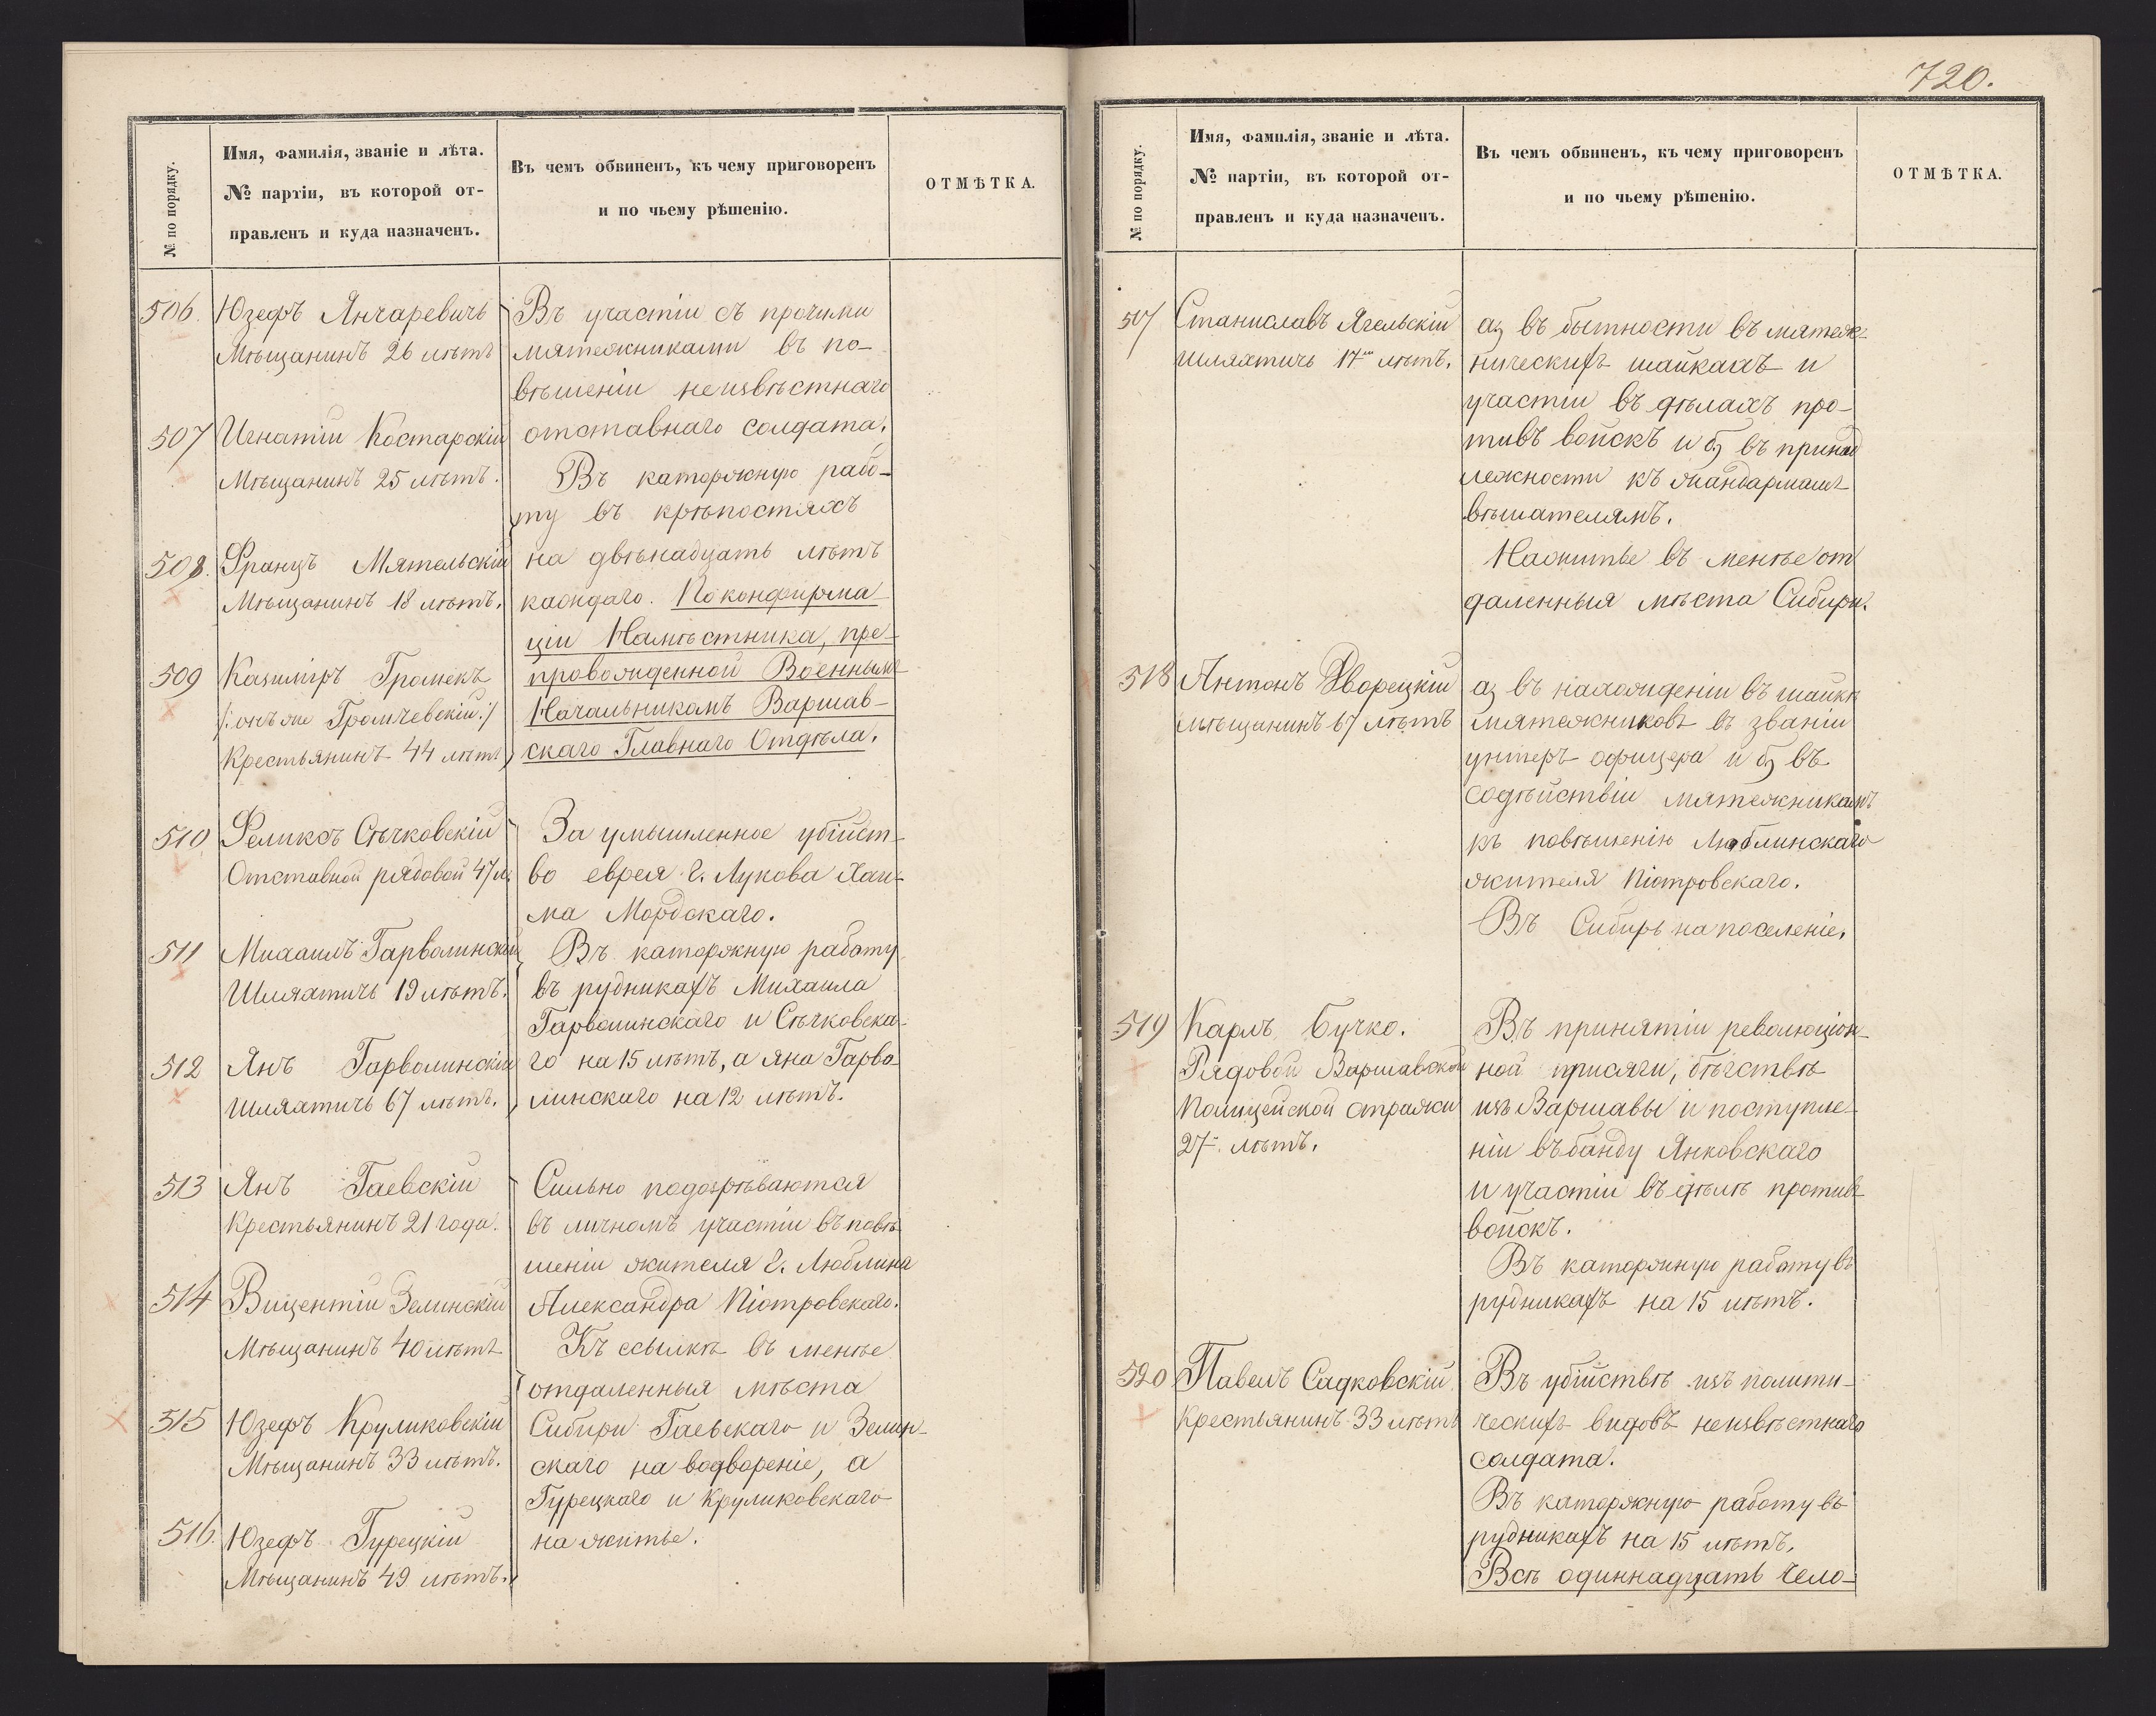 № по порядку.
Имя, фамилія, званіе и лѣта.
№ партіи, въ которой от-
правленъ и куда назначенъ.
Въ чемъ обвиненъ, къ чему приговоренъ
и по чьему рѣшенію.
ОТМѢТКА.
506. Юзефъ Янчаревичъ
Мѣщанинъ 26 лѣтъ
507 Игнатій Костарскій
Мѣщанинъ 25 лѣтъ.
508. Францъ Мятельскій
Мѣщанинъ 18 лѣтъ.
509 Казиміръ Громекъ
/: онъ же Громчевскій :/
Крестьянинъ 44 лѣтъ
Въ участіи съ прочими
мятежниками въ по-
вѣшеніи неизвѣстнаго
отставнаго солдата.
Въ каторжную рабо-
ту въ крѣпостяхъ
на двѣнадцать лѣтъ
каждаго. По конфирма
ціи Намѣстника, пре-
провожденной Военнымъ
Начальникомъ Варшав-
скаго Главнаго Отдѣла.
510 Феликсъ Сѣчковскій
Отставной рядовой 47 л.
511 Михаилъ Гарволинскій
Шляхтичъ 19 лѣтъ.
512 Янъ Гарволинскій
Шляхтичъ 67 лѣтъ.
За умышленное убійст-
во еврея г. Лукова Хаи-
ма Мордскаго.
Въ каторжную работу
въ рудникахъ Михаила
Гарволинскаго и Сѣчковска-
го на 15 лѣтъ, а Яна Гарво-
линскаго на 12 лѣтъ.
513 Янъ Гаевскій
Крестьянинъ 21 года.
514 Вицентій Зелинскій
Мѣщанинъ 40 лѣтъ
515 Юзефъ Круликовскій
Мѣщанинъ 33 лѣтъ.
516. Юзефъ Гурецкій
Мѣщанинъ 49 лѣтъ.
Сильно подозрѣваются
въ личномъ участіи въ повѣ
шеніи жителя г. Люблина
Александра Піотровскаго.
Къ ссылкѣ въ менѣе
отдаленныя мѣста
Сибири Гаевскаго и Зелин-
скаго на водвореніе, а
Гурецкаго и Круликовскаго
на житье.
720.
№ по порядку.
Имя, фамилія, званіе и лѣта.
№ партіи, въ которой от-
правленъ и куда назначенъ.
Въ чемъ обвиненъ, къ чему приговоренъ
и по чьему рѣшенію.
ОТМѢТКА.
517 Станиславъ Ягельскій
шляхтичъ 17ти лѣтъ.
а) въ бытности въ мятеж-
ническихъ шайкахъ и
участіи въ дѣлахъ про-
тивъ войскъ и б) въ принад
лежности къ жандармамъ
вѣшателямъ.
На житье въ менѣе от
даленныя мѣста Сибири.
518 Антонъ Дворецкій
мѣщанинъ 67 лѣтъ
а) въ нахожденіи въ шайкѣ
мятежниковъ въ званіи
унтеръ офицера и б) въ
содѣйствіи мятежникамъ
къ повѣшенію Люблинскаго
жителя Піотровскаго.
Въ Сибирь на поселеніе.
519 Карлъ Бучко.
Рядовой Варшавской
Полицейской стражи
27-. лѣтъ.
Въ принятіи революціон-
ной присяги, бѣгствѣ
изъ Варшавы и поступле-
ніи въ банду Янковскаго
и участіи въ дѣлѣ противъ
войскъ.
Въ каторжную работу въ
рудникахъ на 15 лѣтъ.
520 Павелъ Садковскій
Крестьянинъ 33 лѣтъ
Въ убійствѣ изъ полити-
ческихъ видовъ неизвѣстнаго
солдата.
Въ каторжную работу въ
рудникахъ на 15 лѣтъ.
Всѣ одиннадцать чело-